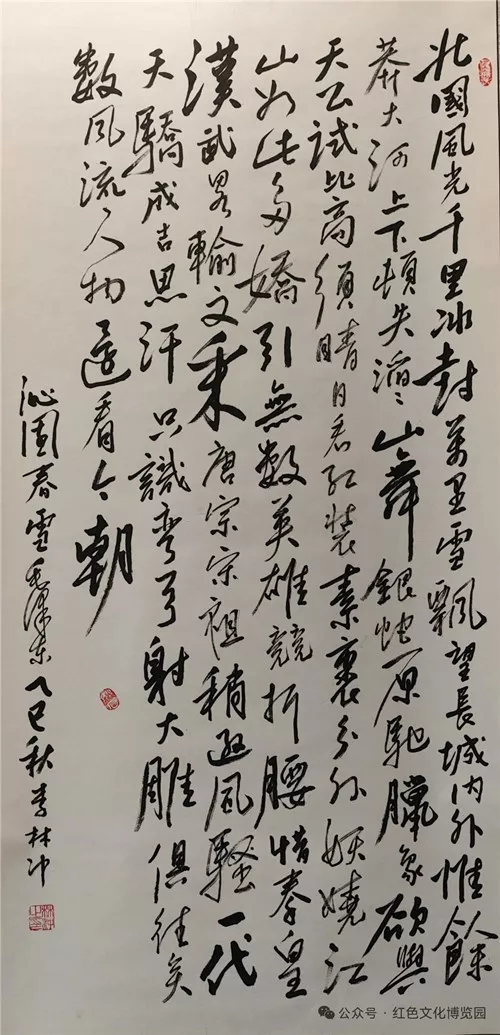 北國風光千里冰封萬里雪飄望長城內外惟餘
莽大河上下頓失滔〻山舞銀蛇原馳臘象欲與
天公試比高須晴日看紅裝素裹分外妖嬈江
山如此多嬌引無數英雄競折腰惜秦皇
漢武畧輸文采唐宗宋祖稍遜風騷一代
天驕成吉思汗只識彎弓射大雕俱往矣
數風流人物還看今朝
沁園春雪毛澤東乙巳秋李林冲
公众号·红色文化博览园